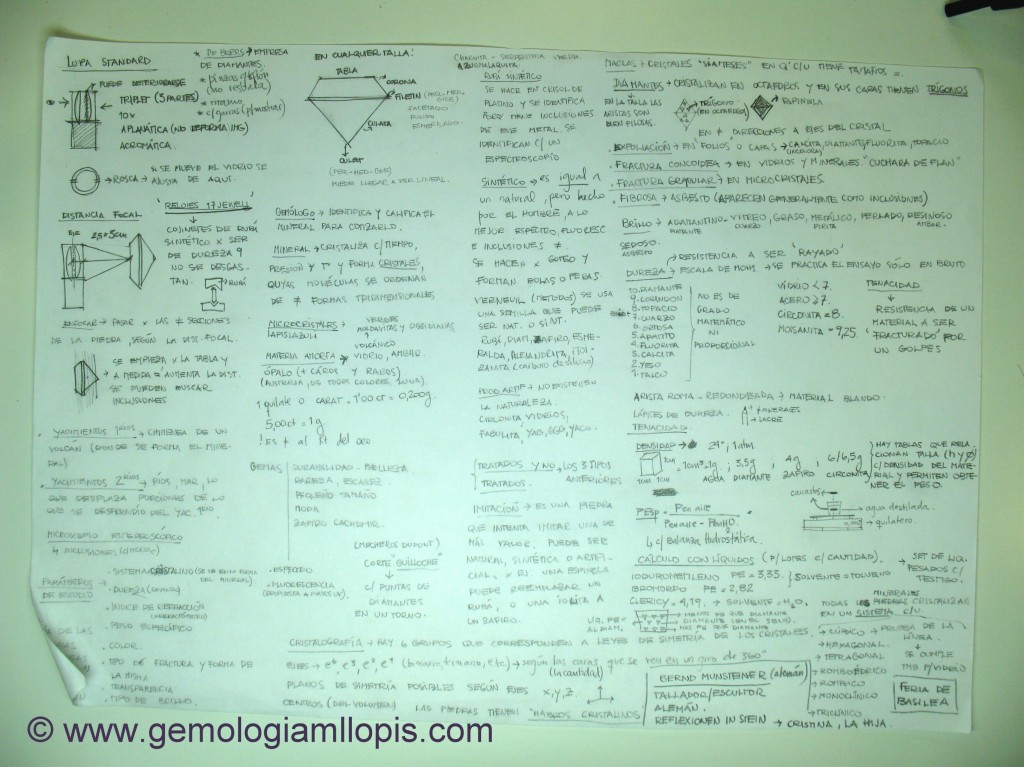 LUPA STANDARD
PUEDE DETERIORARSE
TRIPLET (3 PARTES)
10x
APLANÁTICA (NO DEFORMA IMG)
ACROMÁTICA.
→ ROSCA → SE MUEVE EL VIDRIO SE
AJUSTA DE AQUÍ.
DISTANCIA FOCAL
EJE 2,5 + 5cm
ENFOCAR → PASAR x LAS ≠ SECCIONES
DE LA PIEDRA, SEGÚN LA DIST. FOCAL.
SE EMPIEZA x LA TABLA Y
A MEDIDA Q' AUMENTA LA DIST.
SE PUEDEN BUSCAR
INCLUSIONES
YACIMIENTOS 1rios → CHIMENEA DE UN
VOLCÁN (DONDE SE FORMA EL MINE-
RAL)
YACIMIENTOS 2rios → RÍOS, MAR, LO
QUE DESPLAZA PORCIONES DE LO
QUE SE DESPRENDIÓ DEL YAC. 1rio.
INCLUSIONES
PARÁMETROS
DE ESTUDIO
SISTEMA CRISTALINO
DUREZA
ÍNDICE DE REFRACCIÓN
PESO ESPECÍFICO
COLOR
TIPO DE FRACTURA Y FORMA DE
LA MISMA
TRANSPARENCIA
TIPO DE BRILLO.
* DE BEERS → EMPRESA
DE DIAMANTES.
RELOJES 17 JEWELL
COJINETES DE RUBÍ
SINTÉTICO x SER
DE DUREZA 9
NO SE DESGAS-
TAN.
RUBÍ
EN CUALQUIER TALLA:
TABLA
CORONA
FILETIN
FACETADO
PULIDO
ESMERILADO.
CULATA
CULET
(PEQ-MED-GDE)
GEMÓLOGO → IDENTIFICA Y CALIFICA EL
MINERAL PARA COTIZARLO.
MINERAL → CRISTALIZA C/TIEMPO,
PRESIÓN Y Tº Y FORMA CRISTALES,
CUYAS MOLÉCULAS SE ORDENAN
DE ≠ FORMAS TRIDIMENSIONALES
MICROCRISTALES →
LAPISLÁZULI
VOLCÁNICO
MATERIA AMORFA → VIDRIO, AMBAR.
ÓPALO (+ CAROS Y RAROS)
1 quilate o CARAT = 1'00 ct = 0,200g.
5,00 ct = 1g
GEMAS
DURABILIDAD - BELLEZA
RAREZA, ESCASEZ.
PEQUEÑO TAMAÑO
MODA
ZAFIRO CACHEMIR.
ESPECTRO
FLUORESCENCIA
(MECHEROS DUPONT)
CORTE "GUILLOCHE"
C/PUNTAS DE
DIAMANTES
EN UN TORNO.
RUBÍ SINTÉTICO
SE HACE EN CRISOL DE
PLATINO Y SE IDENTIFICA
PORQ' HACE INCLUSIONES
DE ESE METAL. SE
IDENTIFICAN C/ UN
ESPECTROSCOPIO
SINTÉTICO → es igual a
un natural, pero hecho
por el HOMBRE, A LO
MEJOR ESPECTRO, FLUORESC
E INCLUSIONES ≠.
SE HACEN x GOTEO Y
FORMAN BOLAS O PERAS.
VERNEUIL (METODOS) SE USA
UNA SEMILLA QUE PUEDE
SER NAT. O SINT.
RUBÍ, DIAM, ZAFIRO, ESME-
RALDA, ALEJANDRITA, MOI-
SANITA (carburo de silicio)
PROD. ARTIF → NO EXISTEN EN
LA NATURALEZA.
CIRCONITA VIDRIOS,
FABULITA YAG, GGG, YACO.
TRATADOS Y NO
TRATADOS.
LOS 3 TIPOS
ANTERIORES
IMITACIÓN → ES UNA PIEDRA
QUE INTENTA IMITAR UNA DE
MÁS VALOR. PUEDE SER
NATURAL, SINTÉTICA O ARTIFI-
CIAL. x EJ UNA ESPINELA
PUEDE REEMPLAZAR UN
RUBÍ, O UNA IOLITA A
UN ZAFIRO.
MACLAS → CRISTALES "SIAMESES" EN Q' C/U TIENE TAMAÑOS =.
DIAMANTES → CRISTALIZAN EN OCTAEDROS Y EN SUS CARAS TIENEN TRÍGONOS
EN LA TALLA LAS
ARISTAS SON
BIEN FILOSAS.
TRÍGONO
(EN OCTAEDRO)
ESPINELA
EN ≠ DIRECCIONES A EJES DEL CRISTAL
EXFOLIACIÓN → EN "FOLIOS" O CAPAS → CALCITA, DIAMANTE, FLUORITA, TOPACIO
(INCOLORA)
FRACTURA CONCOIDEA → EN VIDRIOS Y MINERALES "CUCHARA DE FLAN"
FRACTURA GRANULAR → EN MICROCRISTALES.
FIBROSA → ASBESTO (APARECEN GENERALMENTE COMO INCLUSIONES)
BRILLO → ADAMANTINO - VÍTREO, GRASO, METÁLICO, PERLADO, RESINOSO
DIAMANTE CUARZO PIRITA AMBAR.
SEDOSO.
ASBESTO
RESISTENCIA A SER "RAYADO"
DUREZA → ESCALA DE MOHS → SE PRACTICA EL ENSAYO SÓLO EN BRUTO
10. DIAMANTE
9. CORINDON
8. TOPACIO
7. CUARZO
6. ORTOSA
5. APATITO
4. FLUORITA
3. CALCITA
2. YESO
1. TALCO
NO ES DE
GRADO
MATEMÁTICO
NI
PROPORCIONAL
VIDRIO < 7.
ACERO ≥ 7.
CIRCONITA = 8.
MOISANITA = 9,25.
TENACIDAD
RESISTENCIA DE UN
MATERIAL A SER
"FRACTURADO" POR
UN GOLPES
ARISTA ROMA - REDONDEADA → MATERIAL BLANDO.
LÁPICES DE DUREZA.
MINERALES
LACRE
TENACIDAD
DENSIDAD → 24º, 1 atm
1cm
1cm 1cm
= 1cm³ = 1g; 3,5g; 4g; 6/6,5g
AGUA DIAMANTE ZAFIRO CIRCONITA
HAY TABLAS QUE RELA-
CIONAN TALLA (h y Ø)
C/DENSIDAD DEL MATE-
RIAL Y PERMITEN OBTE-
NER EL PESO.
PEsp = P en aire
P en aire - P en H₂O.
↳ c/ Balanza Hidrostática.
canastilla
agua destilada.
quilatero.
CÁLCULO CON LÍQUIDOS (P/LOTES C/ CANTIDAD).
SET DE LIQ.
PESADOS C/
TESTIGO.
IODUROMETILENO PE = 3,33.
BROMOFOR PE = 2,82
SOLVENTE = TOLUENO
CLERICY = 4,19. → SOLVENTE = H₂O.
MINERALES
TODAS LAS PIEDRAS CRISTALIZAN
EN UN SISTEMA C/U
CÚBICO → PRUEBA DE LA
LÍNEA.
HEXAGONAL.
TETRAGONAL
ROMBOÉDRICO
ROMBICO
MONOCLÍNICO
TRICLÍNICO
SE CUMPLE
TMB P/VIDRIO
CRISTALOGRAFÍA → HAY 6 GRUPOS QUE CORRESPONDEN A LEYES DE SIMETRÍA DE LOS CRISTALES.
EJES → e⁶, e³, e², e⁴ (binario, ternario, etc) → según las caras que se ven en un giro de 360º
(la cantidad)
PLANOS DE SIMETRÍA POSIBLES SEGÚN EJES X, Y, Z.
CENTROS (DEL VOLUMEN) LAS PIEDRAS TIENEN "HÁBITOS CRISTALINOS"
BERND MUNSTEINER (alemán)
TALLADOR/ESCULTOR
ALEMÁN.
REFLEXIONEN IN STEIN → CRISTINA, LA HIJA.
FERIA DE
BASILEA
© www.gemologiamllopis.com